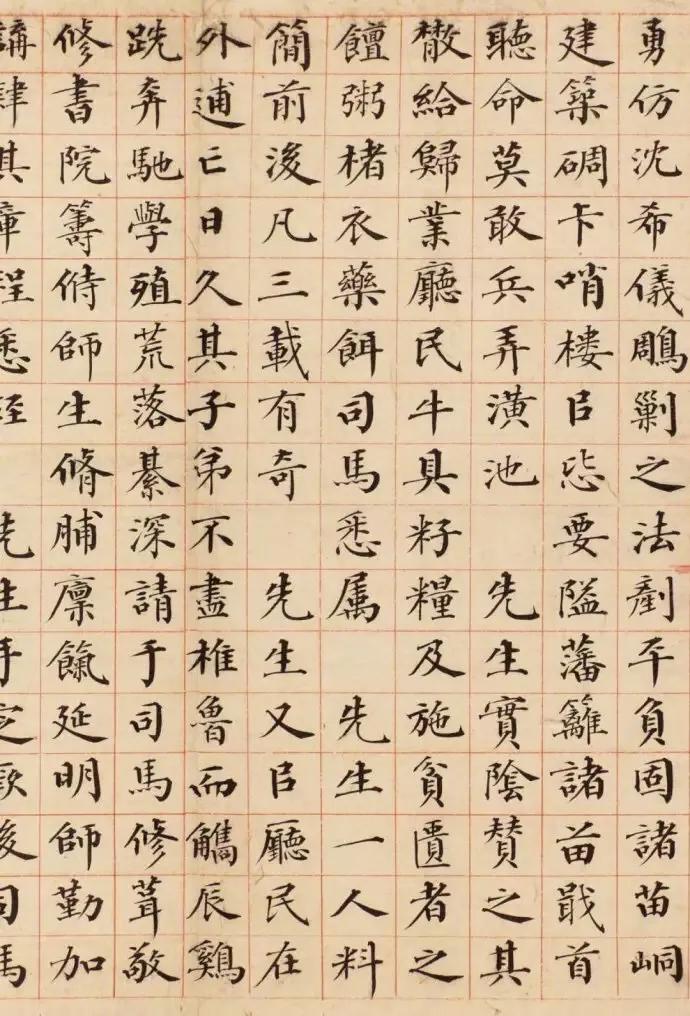 勇仿沈希儀鵰剿之法剷平負固諸苗峒
建築碉卡哨樓㠯要隘藩籬諸苗戢首
聽命莫敢兵弄潢池 先生實陰賛之其
散給歸業廳民牛具籽糧及施貧匱者之
饘粥楮衣藥餌司馬悉属 先生一人料
簡前後凡三載有奇 先生又㠯廳民在
外逋亡日久其子弟不盡椎魯而觿辰鷄
跣奔馳學殖荒落綦深請于司馬修葺敬
修書院籌偫師生脩脯廩餼延明師勤加
講肄其章程悉經 先生手定厥後司馬